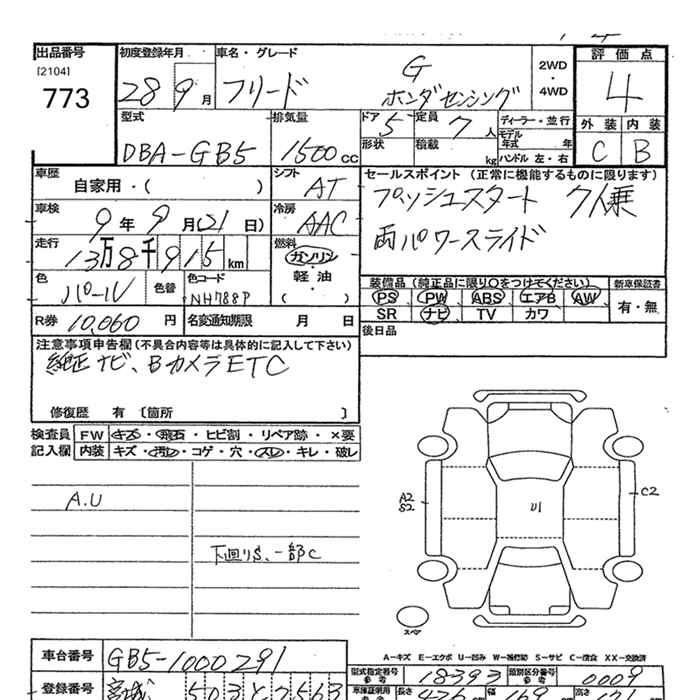 出品番号
[2104]
773
初度登録年月
28 9月
車名・グレード
フリード G ホンダセンシング
2WD
・
4WD
評価点
4
外装 内装
C B
型式
DBA-GB5
排気量
1500cc
ドア 5
定員 7人
形状
積載 kg
ディーラー・並行
モデル年式 年
ハンドル 左・右
車歴
自家用・( )
シフト
AT
セールスポイント (正常に機能するものに限ります)
プッシュスタート 7人乗
両パワースライド
車検
9年9月(21日)
冷房
AAC
走行
13万8千915km
燃料
ガソリン
・
軽油
・
( )
色
パール
色替
色コード
NH788P
装備品 (純正品に限り○をつけてください)
PS PW ABS エアB AW
SR ナビ TV カワ
新車保証書
有・無
R券 10,060円
名変通知期限 月 日
後日品
注意事項申告欄 (不具合内容等は具体的に記入して下さい)
純正ナビ、BカメラETC
修復歴 有 [箇所 ]
検査員
記入欄
FW キズ・飛石・ヒビ割・リペア跡・×要
内装 キズ・汚レ・コゲ・穴・スレ・キレ・破レ
A.U
下廻りS、一部C
A2
S2
U1
C2
スペア
A-キズ E-エクボ U-凹み W-補修跡 S-サビ C-腐食 XX-交換済
車台番号
GB5-1000291
型式指定番号
参考
18393
類別区分番号
参考
0009
登録番号
宮城 503 と 2563
長さ
幅
高さ